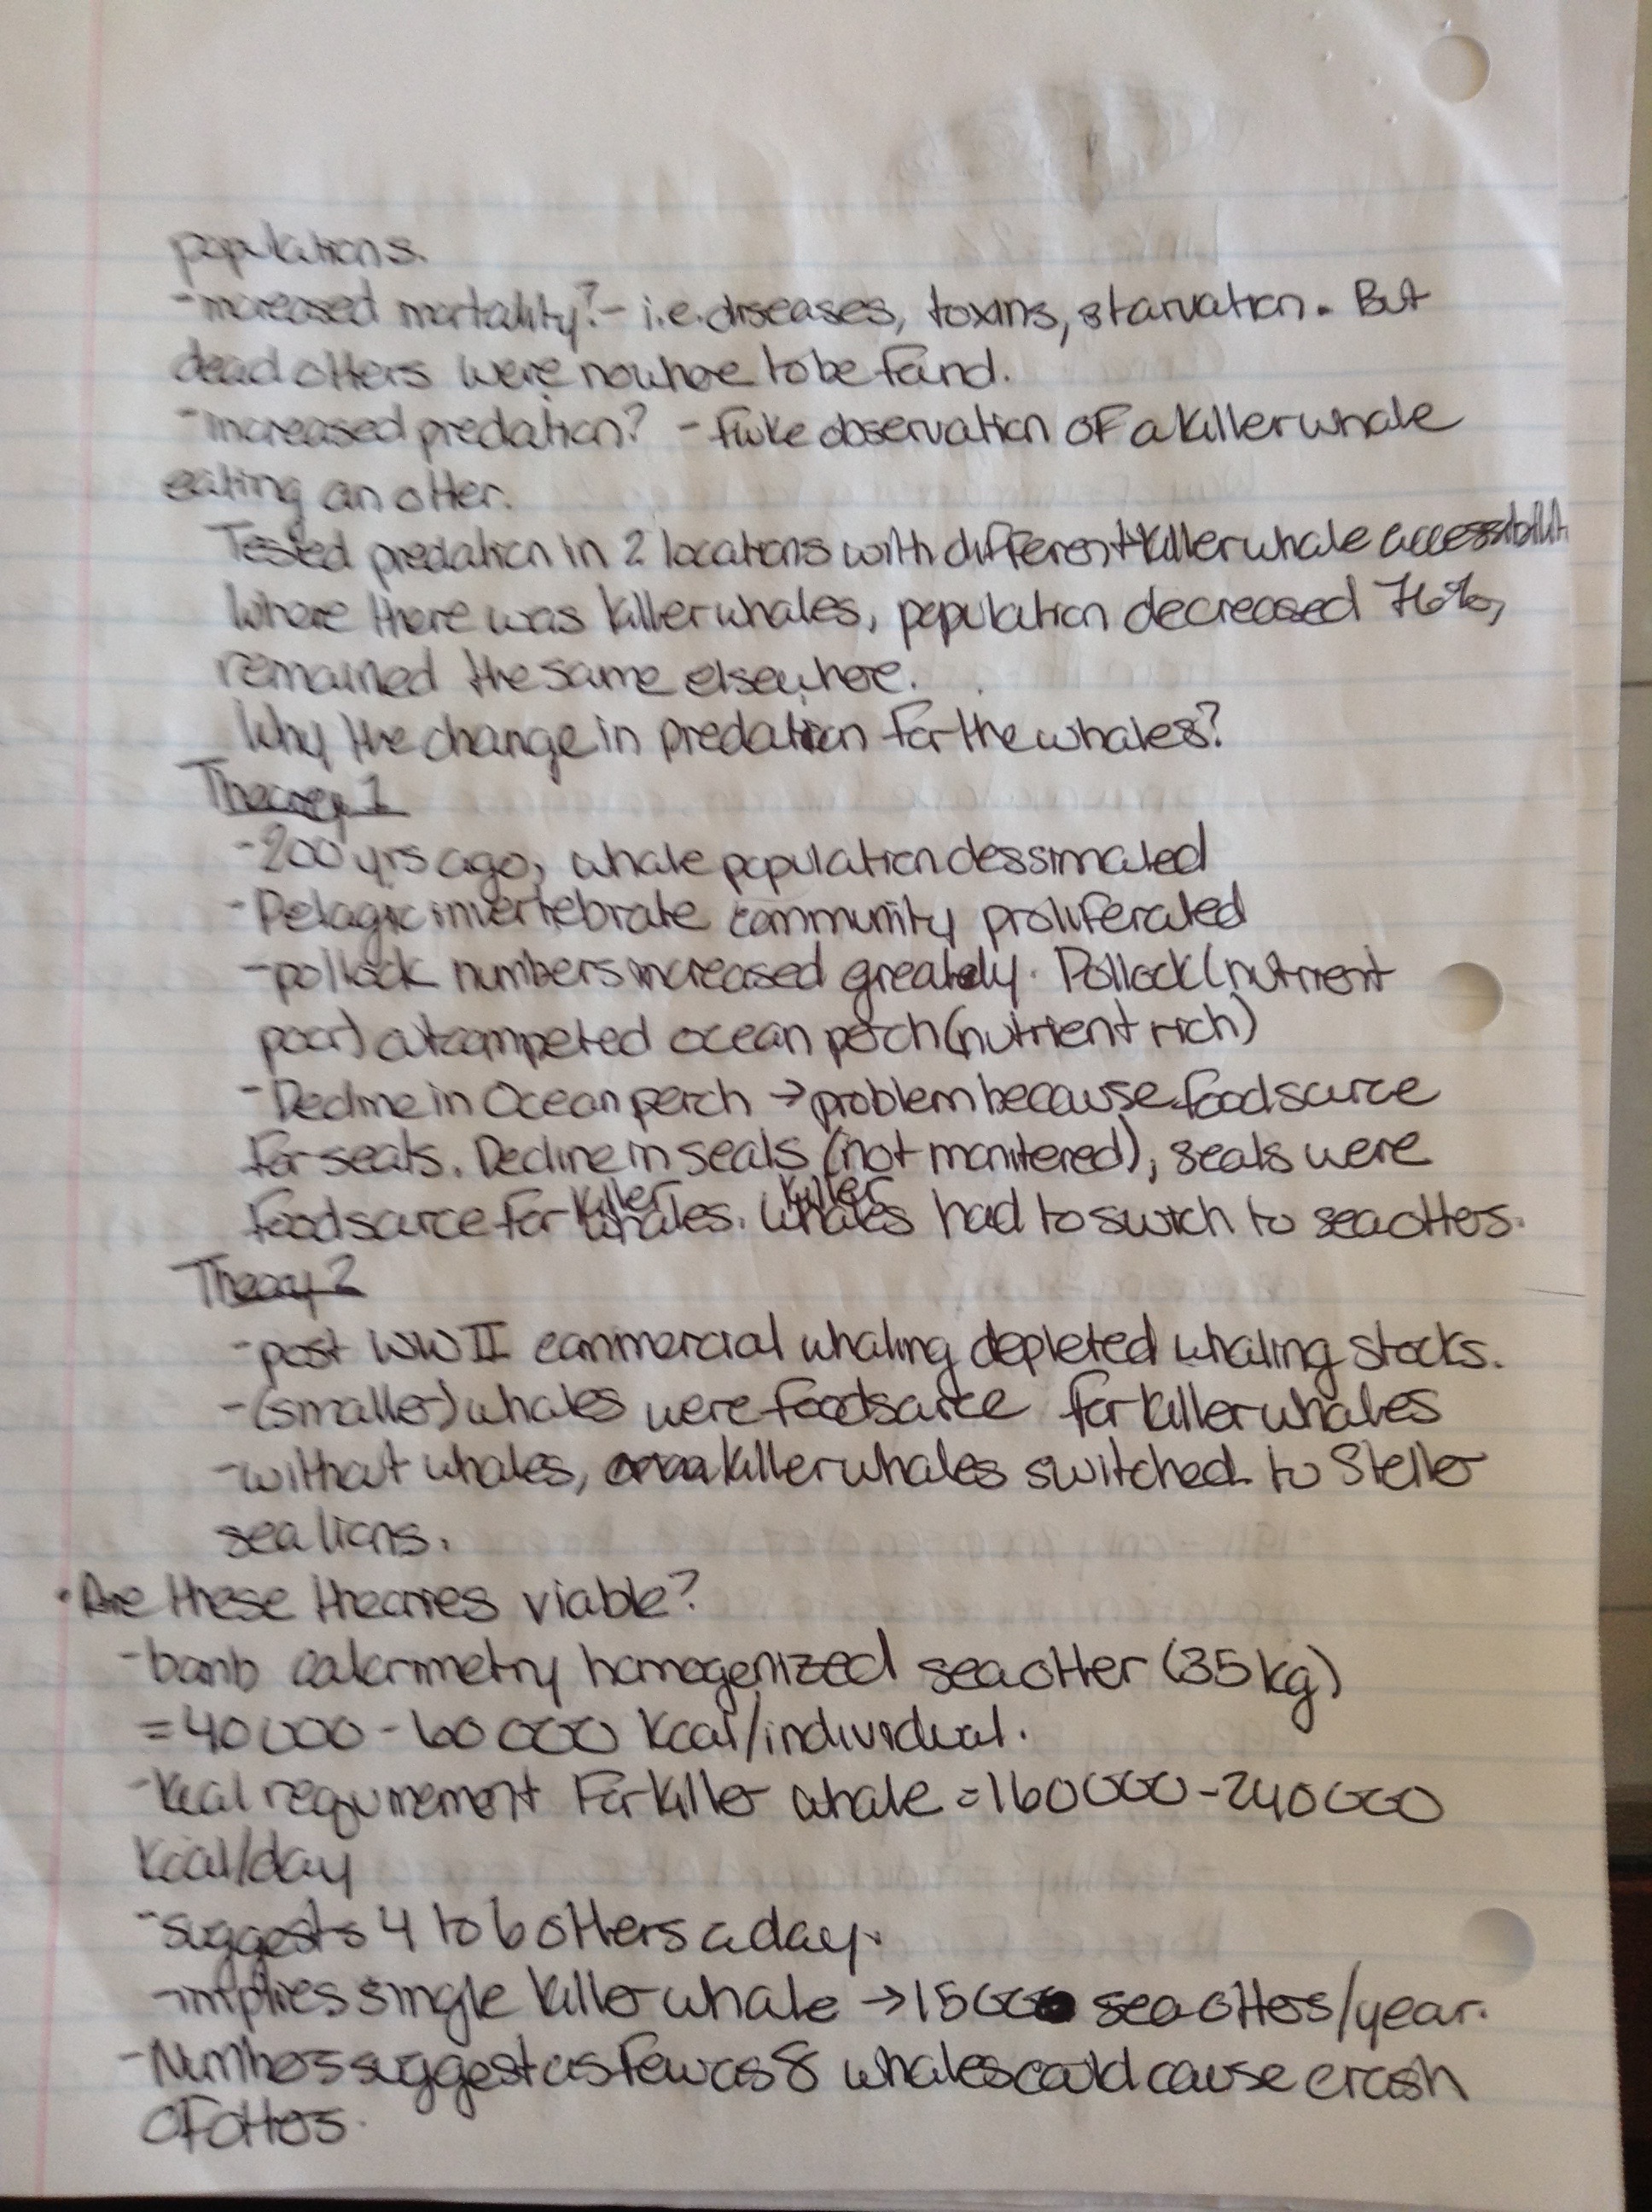 populations.
- increased mortality? - i.e. diseases, toxins, starvation. But
dead otters were nowhere to be found.
- increased predation? - fluke observation of a killer whale
eating an otter.
Tested predation in 2 locations with different killer whale accessibilit
Where there was killer whales, population decreased 76%,
remained the same elsewhere.
Why the change in predation for the whales?
Theory 1
- 200 yrs ago, whale population dessimated
- Pelagic invertebrate community proliferated
- pollock numbers increased greately. Pollock (nutrient
poor) outcompeted ocean perch (nutrient rich)
- Decline in Ocean perch → problem because food source
for seals. Decline in seals (not monitered), seals were
food source for killer whales. Killer whales had to swich to sea otters.
Theory 2
- post WWII commercial whaling depleted whaling stocks.
- (smaller) whales were food source for killer whales
- without whales, killer whales switched to Steller
sea lions.
• Are these theories viable?
- bomb calorimetry homogenized sea otter (35 kg)
= 40 000 - 60 000 Kcal/individual.
- Kcal requirement for killer whale = 160 000 - 240 000
Kcal/day
- suggests 4 to 6 otters a day.
- implies single killer whale → 1500 sea otters/year.
- Numbers suggest as few as 8 whales could cause crash
of otters.